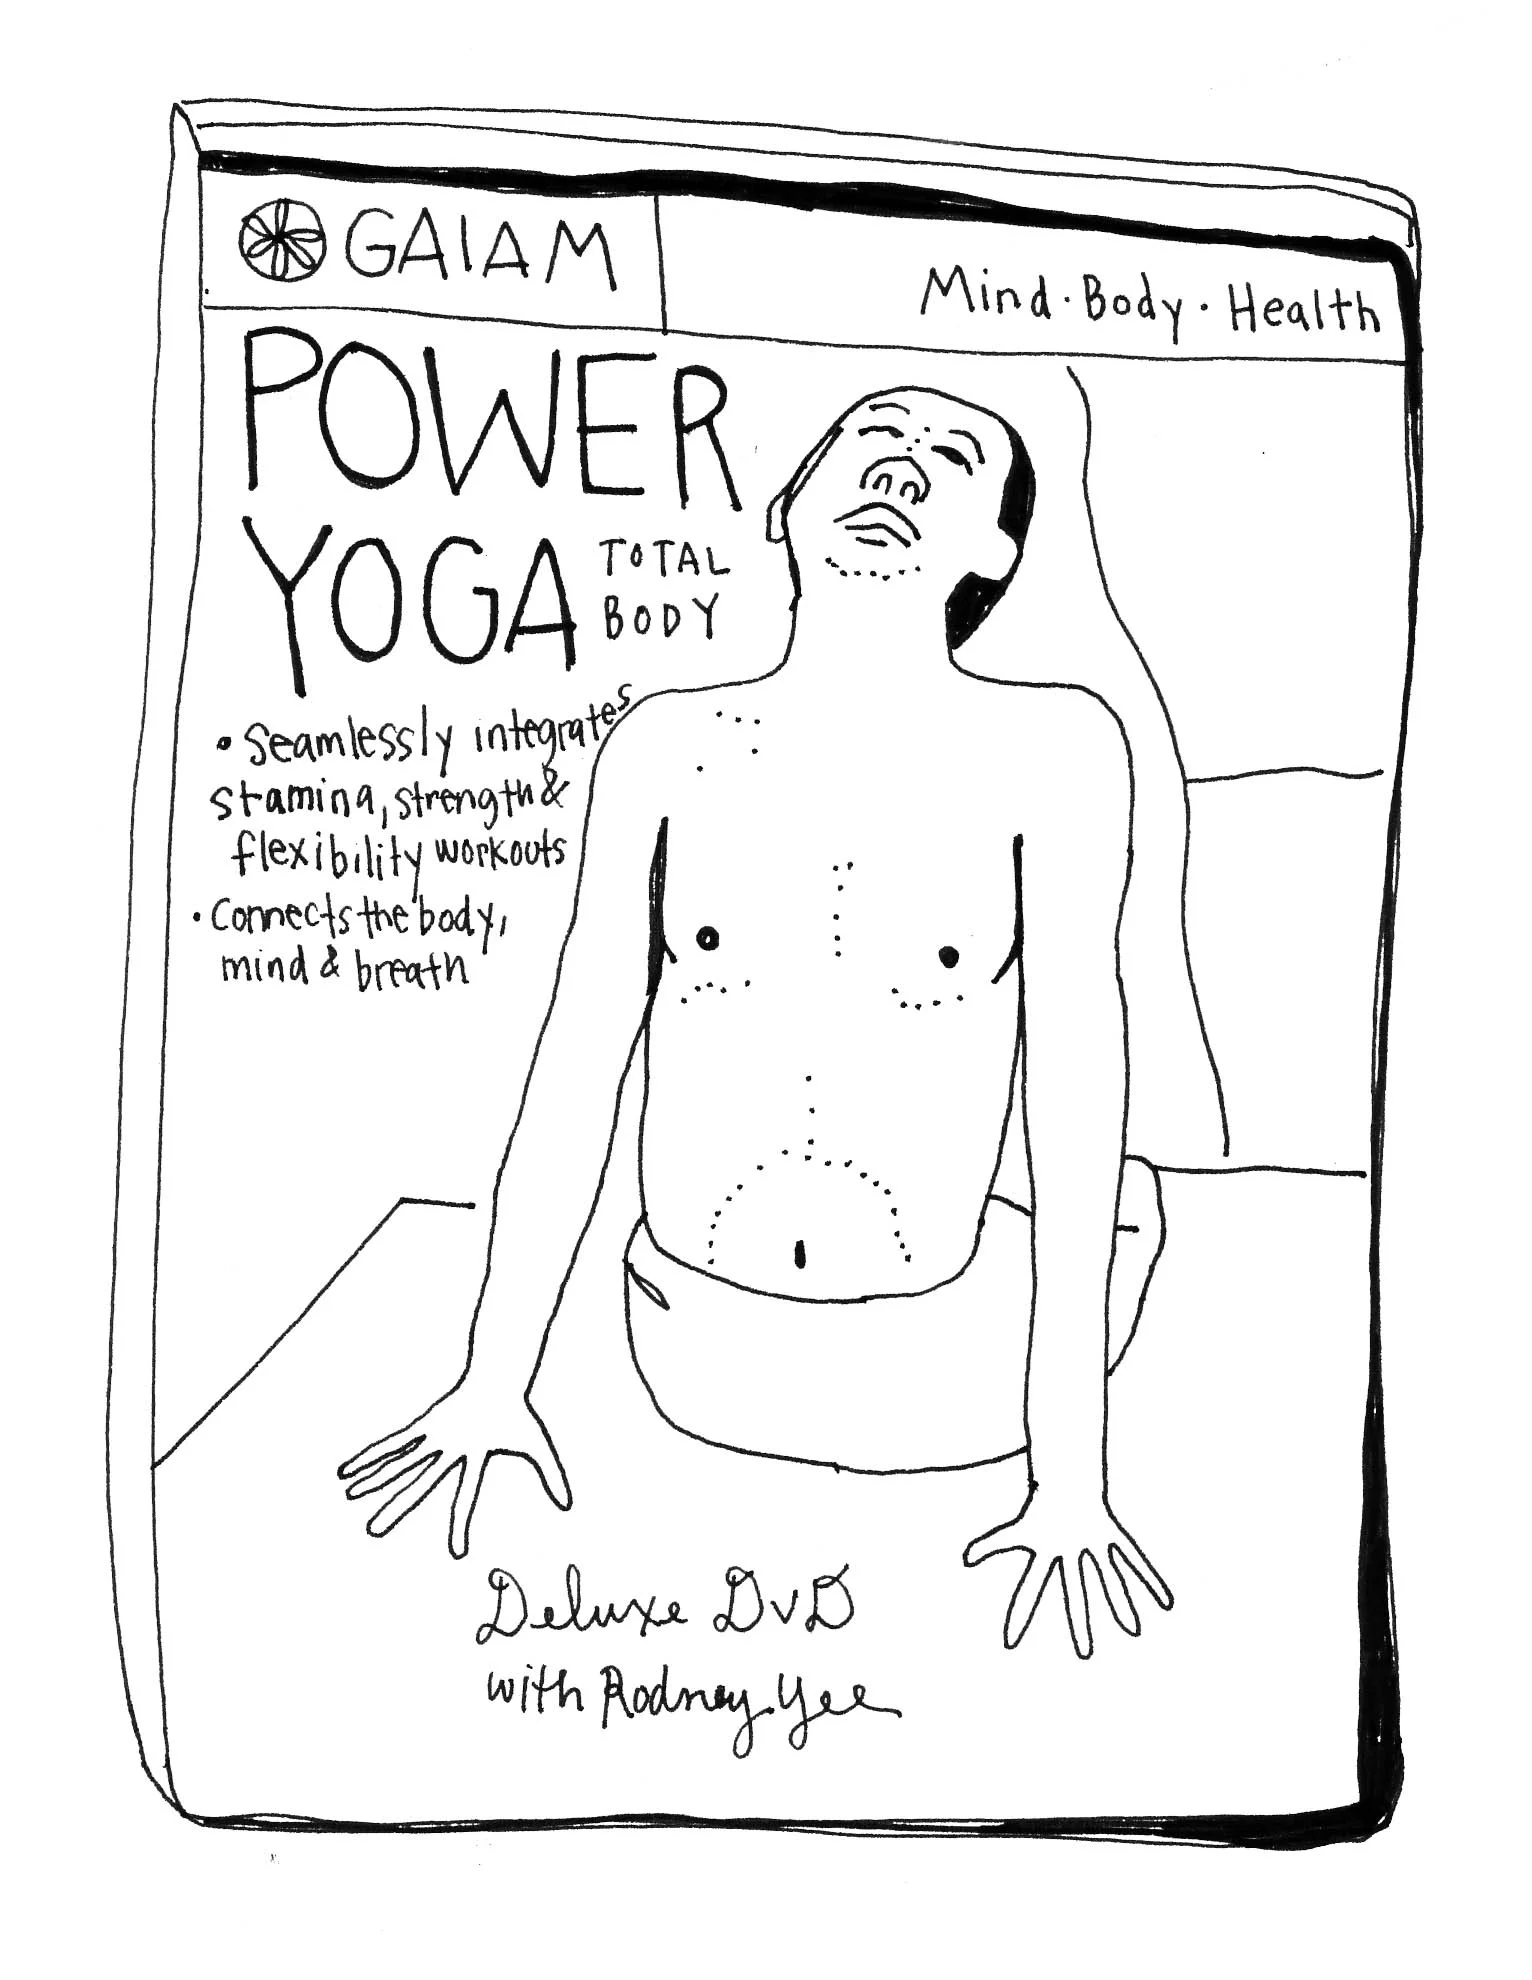 GAIAM
Mind · Body · Health
POWER
YOGA
TOTAL
BODY
• Seamlessly integrates
stamina, strength &
flexibility workouts
• Connects the body,
mind & breath
Deluxe DVD
with Rodney Yee